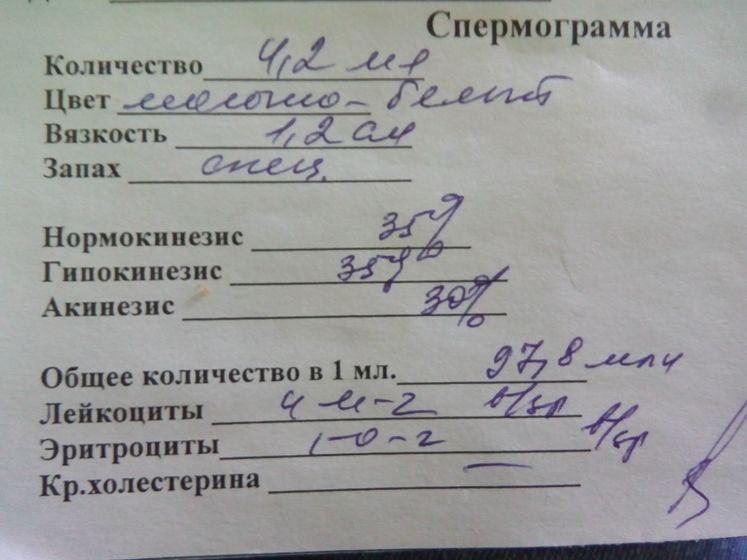 Спермограмма
Количество 4,2 мл
Цвет молочно-белый
Вязкость 1,2 см
Запах спец.
Нормокинезис 35%
Гипокинезис 35%
Акинезис 30%
Общее количество в 1 мл. 97,8 млн
Лейкоциты в/зр
Эритроциты в/зр
Кр.холестерина —